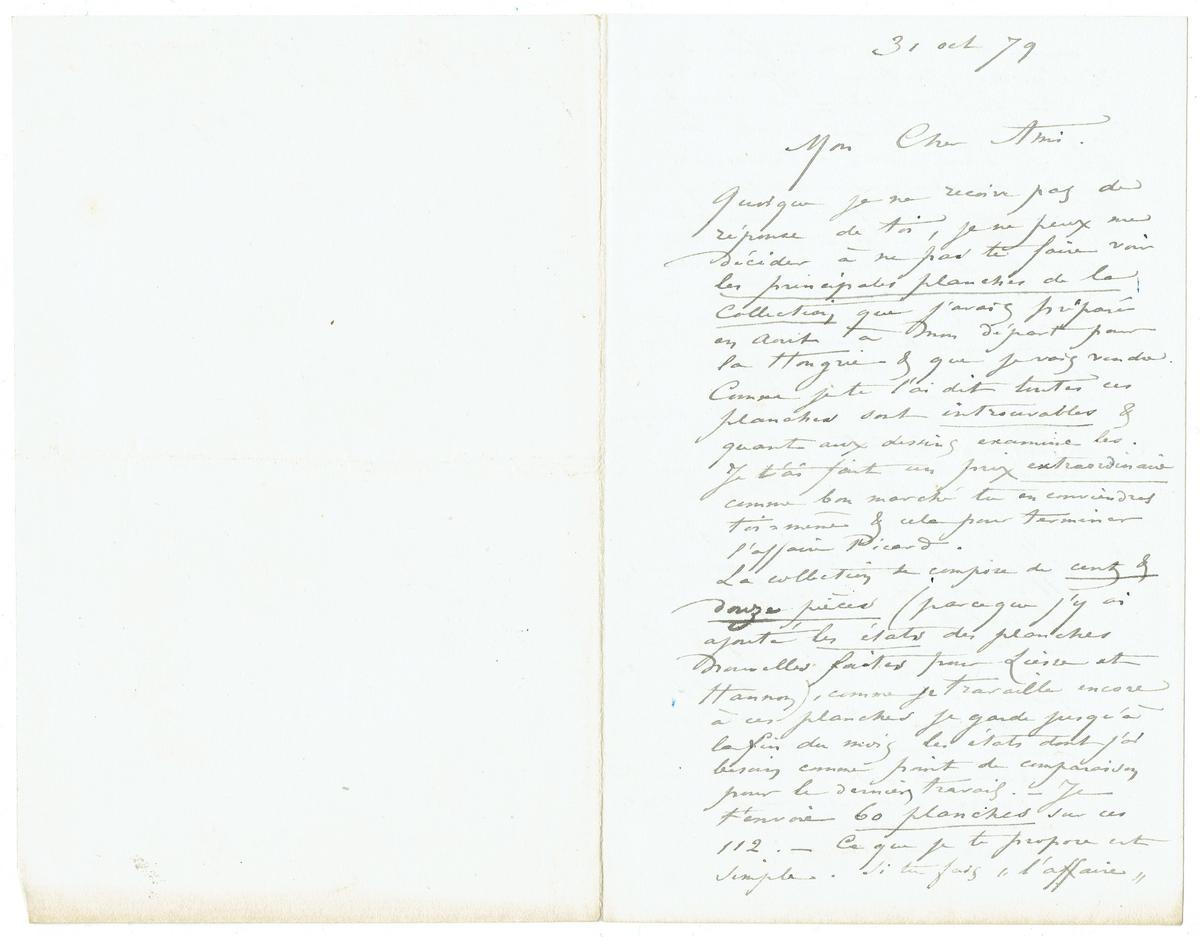 31 oct 79
Mon Cher Ami.
Quoique je ne recoive pas de
réponse de toi, je ne peux me
décider à ne pas te faire voir
les principales planches de la
Collection que j'avais préparé
en Aout à mon départ pour
la Hongrie & que je vais vendre.
Comme je te l'ai dit toutes ces
planches sont introuvables &
quant aux dessins examine les.
Je t'ai fait un prix extraordinaire
comme bon marché tu en conviendras
toi-même & cela pour terminer
l'affaire Picard.
La collection se compose de cent &
douze pièces (parceque j'y ai
ajouté les états des planches
nouvelles faites pour Liesse et
Hannon), comme je travaille encore
à ces planches je garde jusqu'à
la fin du mois les états dont j'ai
besoin comme point de comparaison
pour le dernier travail. — Je
t'envoie 60 planches sur ces
112. — Ce que je te propose est
simple. Si tu fais „l'affaire„